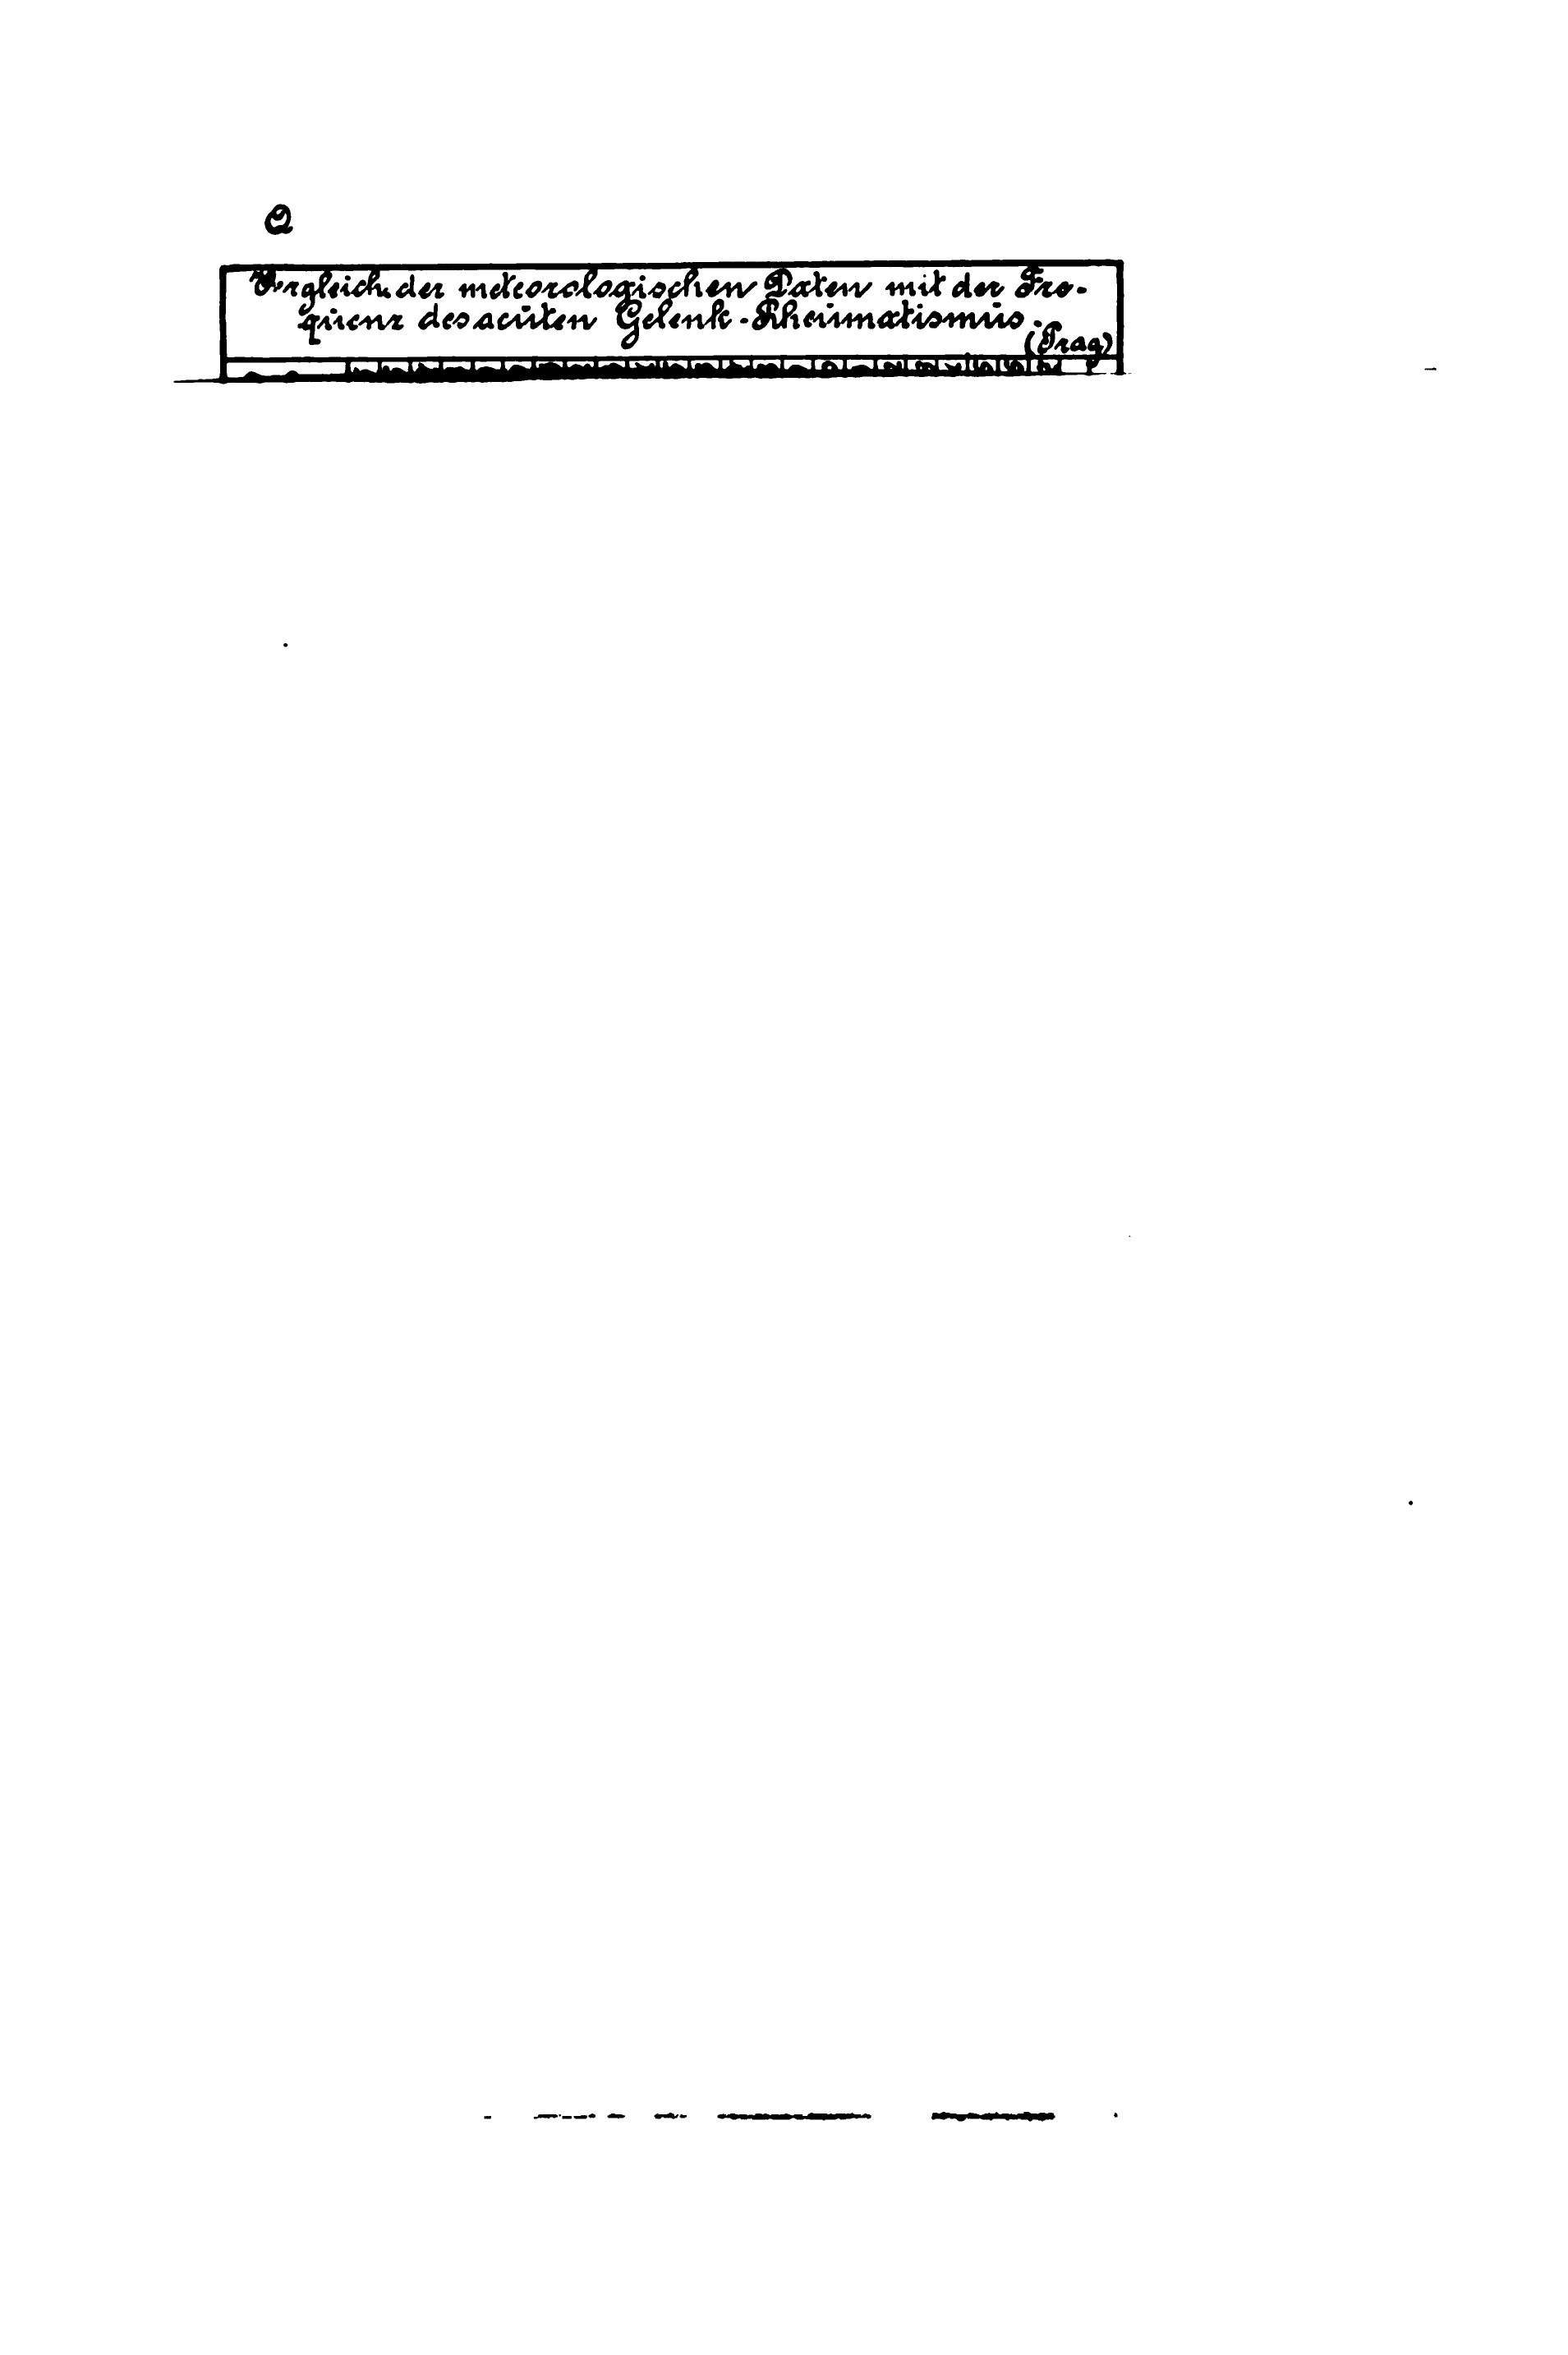 Q
Vergleich der meteorologischen Daten mit der Fre-
quenz des acuten Gelenk-Rheumatismus.
(Prag)